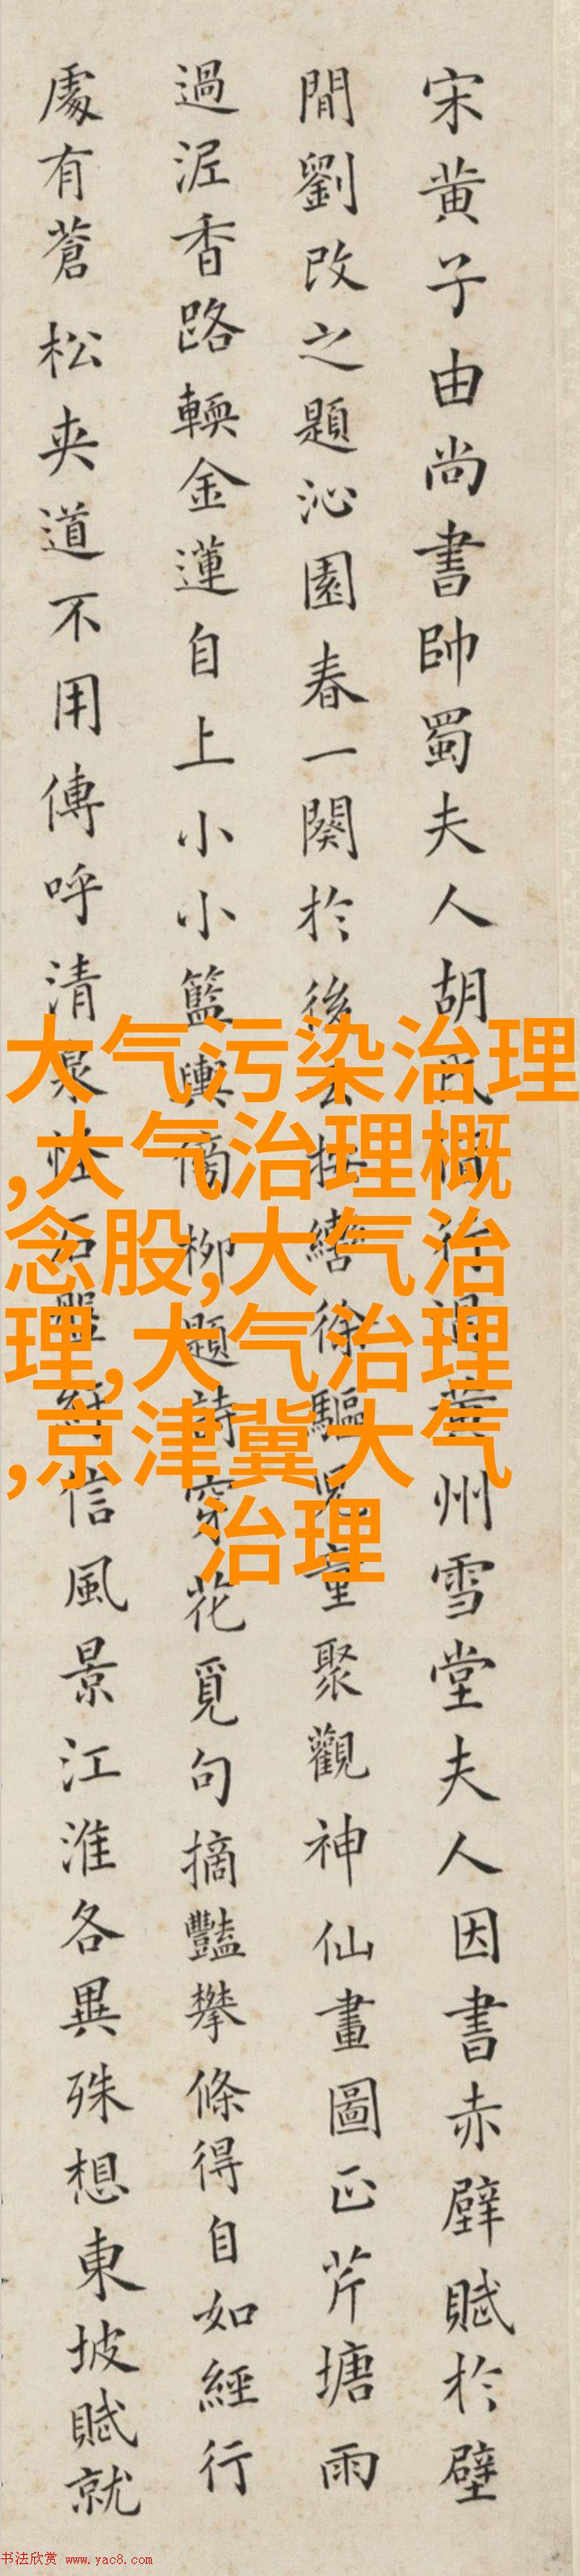 宋黄子由尚書帥蜀夫人胡氏偕行過黄州雪堂夫人因書赤壁賦於壁
間劉改之題沁園春一闋於後云按轡徐驅兒童聚觀神仙畫圖正芹塘雨
過泥香路輭金蓮自上小小籃輿傍柳題詩穿花覓句摘豔攀條得自如經行
處有蒼松夾道不用傳呼清泉怪石盤紆信風景江淮各異殊想東坡賦就
大气污染治理
,大气治理概
念股,大气治
理,大气治理
,京津冀大气
治理
书法欣赏 www.yac8.com